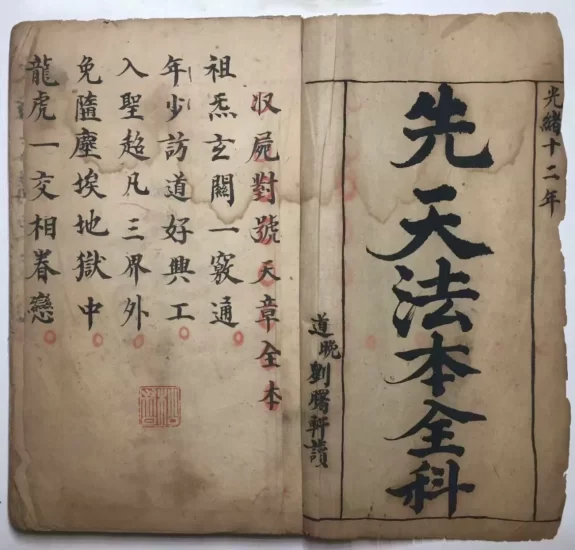 光緒十二年
先天法本全科
道晚劉曙軒讃
収屍對號天章全本
祖炁玄關一竅通
年少訪道好興工
入聖超凡三界外
免隨塵埃地獄中
龍虎一交相眷戀